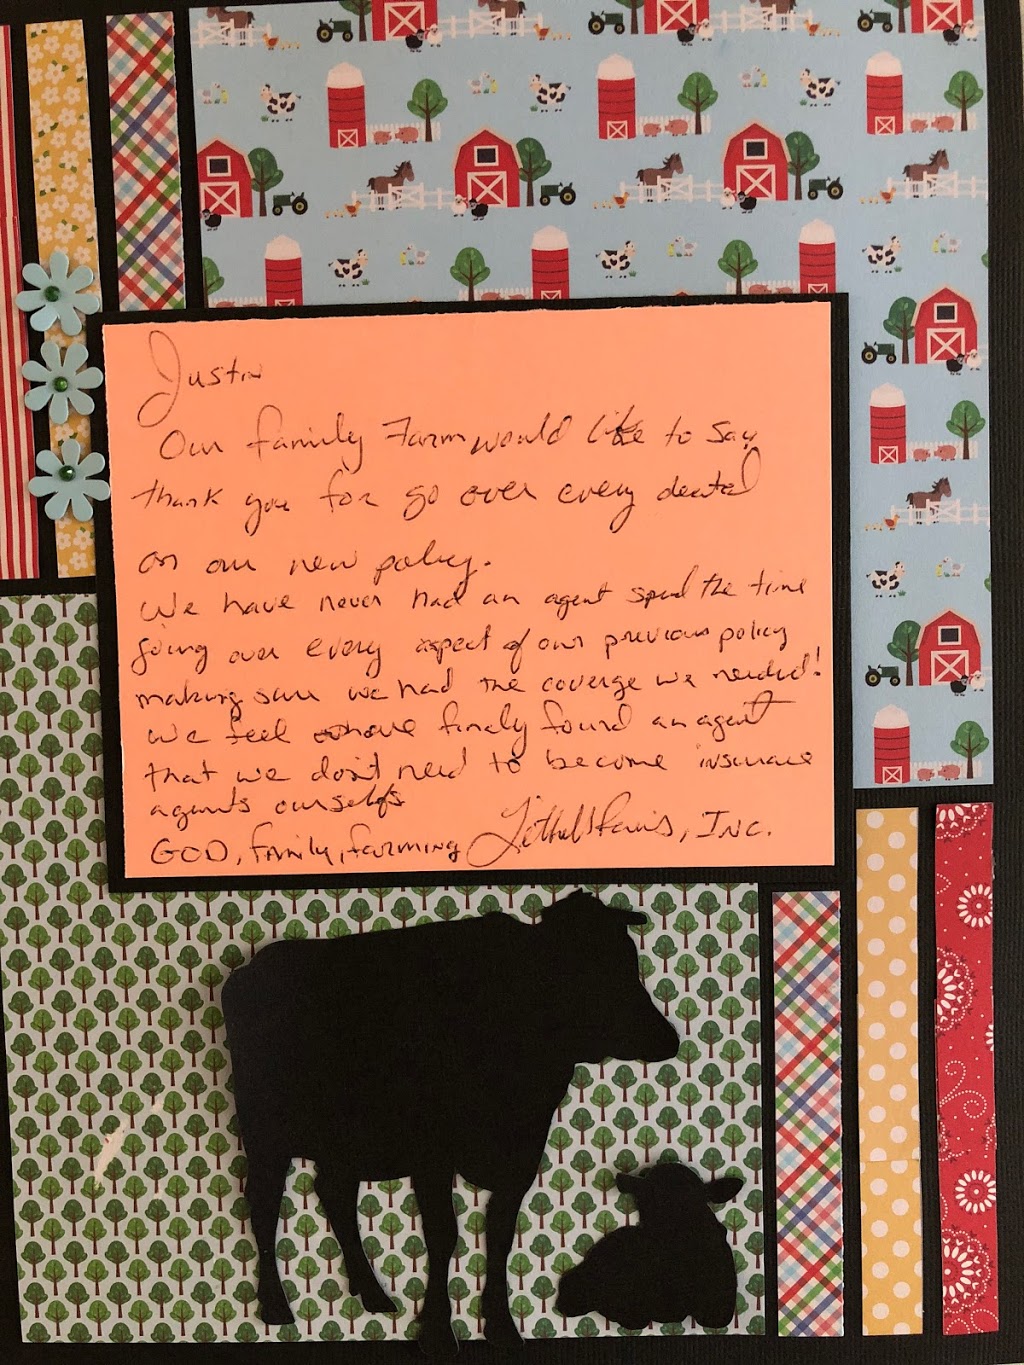 Justin
Our family Farm would like to say
thank you for go over every deatal
on our new policy.
We have never had an agent spend the time
going over every aspect of our previous policy
making sure we had the coverge we needed!
We feel have finely found an agent
that we don't need to become insurance
agents ourselfs
GOD, family, farming , INC.